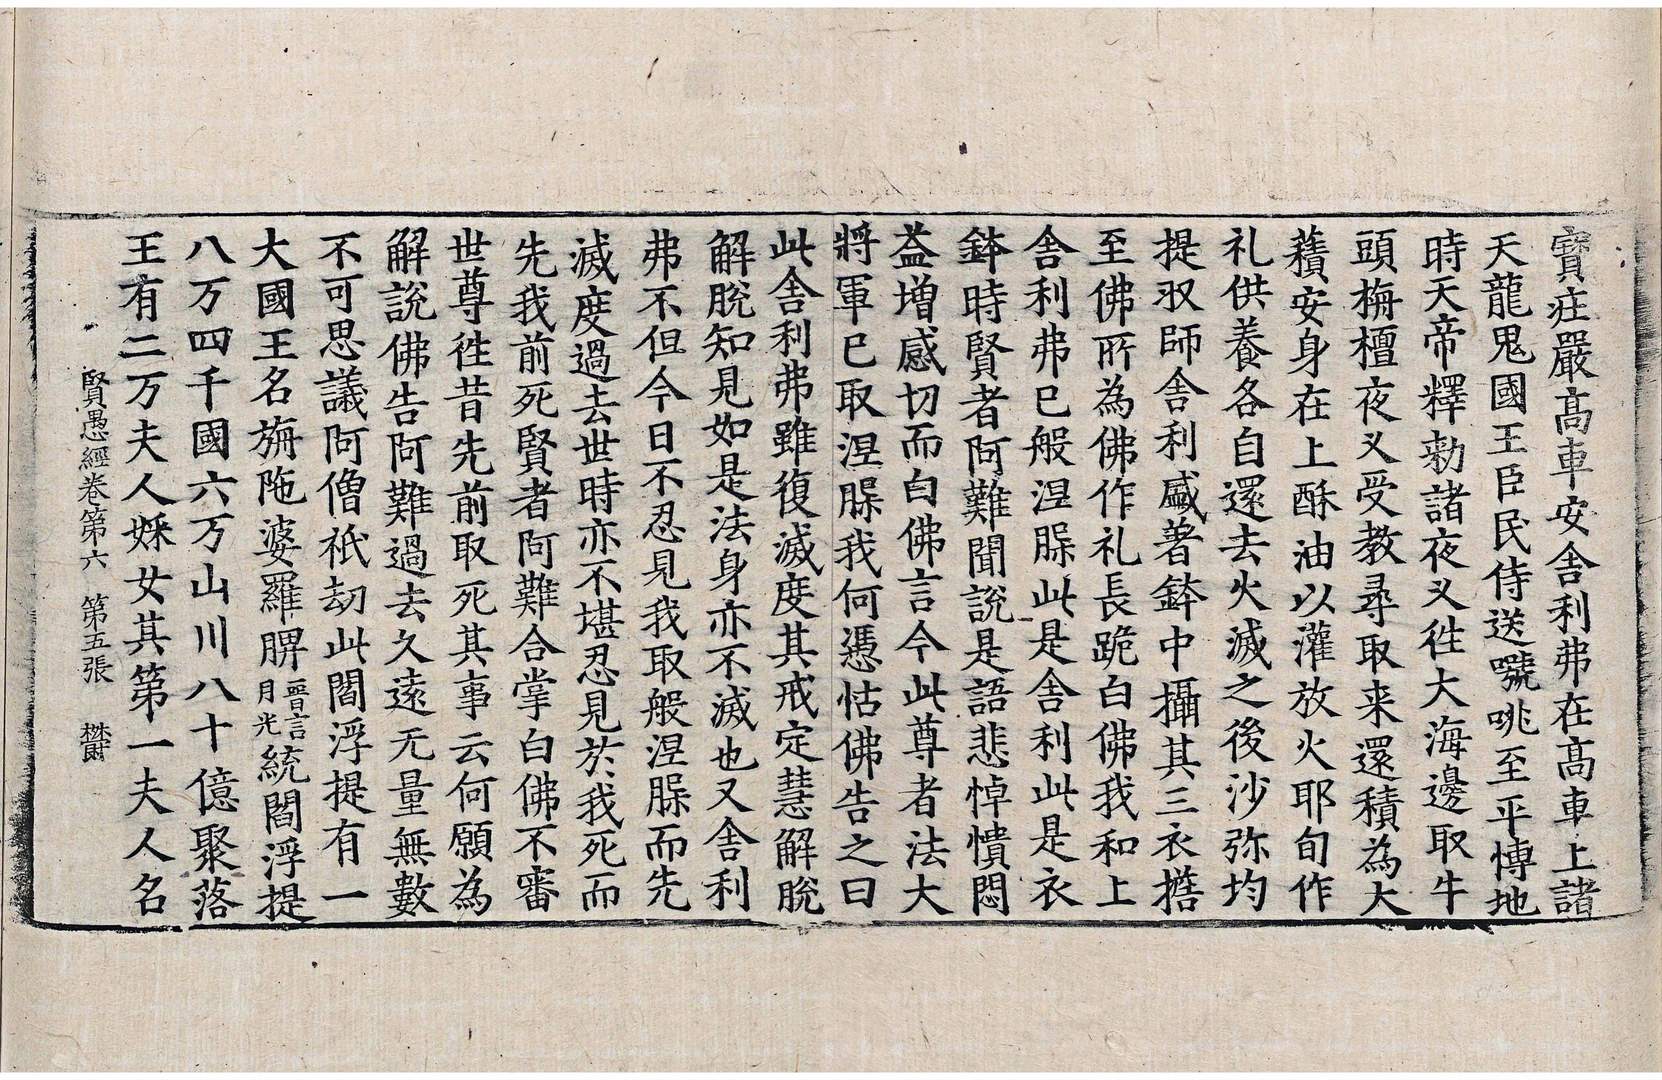 寶庄嚴高車安舍利弗在高車上諸
天龍鬼國王臣民侍送號咷至平愽地
時天帝釋勑諸夜叉徃大海邊取牛
頭栴檀夜叉受教尋取来還積為大
𧂐安身在上酥油以灌放火耶旬作
礼供養各自還去火滅之後沙弥均
提㧕師舍利盛著鉢中攝其三衣擔
至佛所為佛作礼長跪白佛我和上
舍利弗已般涅䏶此是舍利此是衣
鉢時賢者阿難聞說是語悲悼憒悶
益增感切而白佛言今此尊者法大
將軍已取涅䏶我何憑怙佛告之曰
此舍利弗雖復滅度其戒定慧解脫
解脫知見如是法身亦不滅也又舍利
弗不但今日不忍見我取般涅䏶而先
滅度過去世時亦不堪忍見於我死而
先我前死賢者阿難合掌白佛不審
世尊徃昔先前取死其事云何願為
解說佛告阿難過去久遠无量無數
不可思議阿僧祇劫此閻浮提有一
大國王名旃陁婆羅脾晉言月光統閻浮提
八万四千國六万山川八十億聚落
王有二万夫人婇女其第一夫人名
賢愚經卷第六 第五張 欝